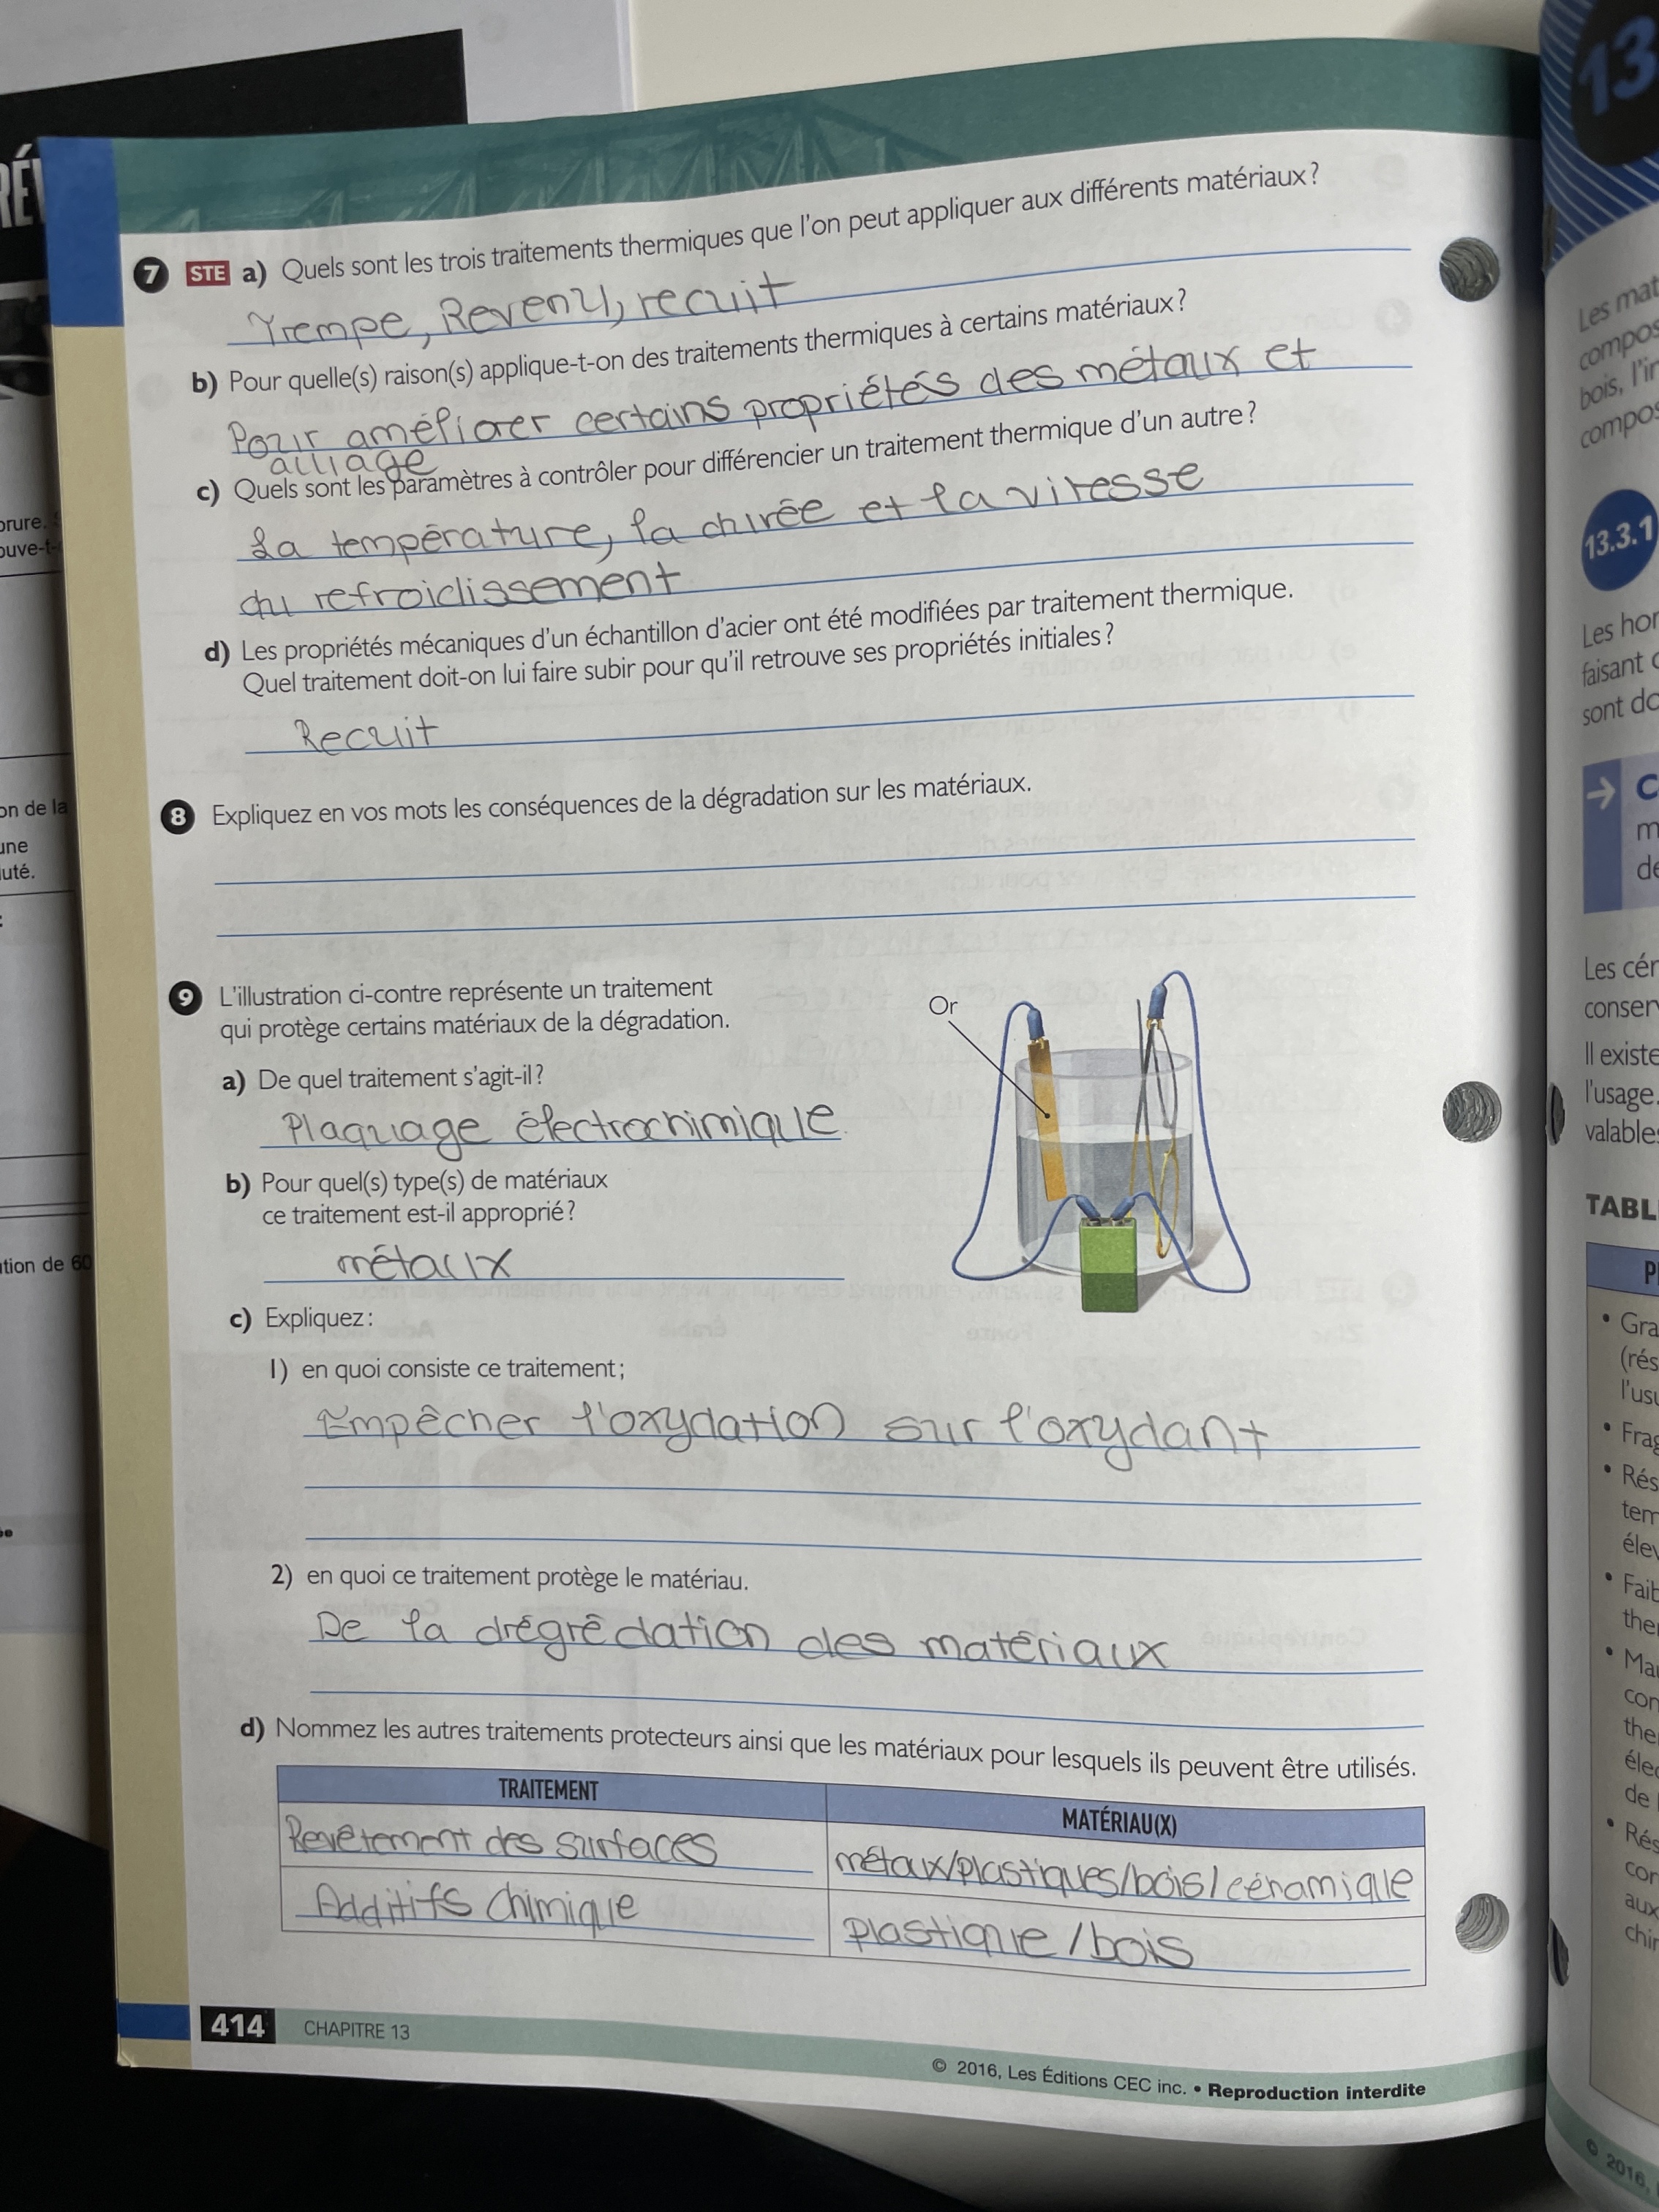 7 STE a) Quels sont les trois traitements thermiques que l'on peut appliquer aux différents matériaux?
Trempe, Revenu, recuit
b) Pour quelle(s) raison(s) applique-t-on des traitements thermiques à certains matériaux?
Pour améliorer certains propriétés des métaux et
alliage
c) Quels sont les paramètres à contrôler pour différencier un traitement thermique d'un autre?
La température, la durée et la vitesse
du refroidissement
d) Les propriétés mécaniques d'un échantillon d'acier ont été modifiées par traitement thermique.
Quel traitement doit-on lui faire subir pour qu'il retrouve ses propriétés initiales?
Recuit
8 Expliquez en vos mots les conséquences de la dégradation sur les matériaux.
9 L'illustration ci-contre représente un traitement
qui protège certains matériaux de la dégradation.
Or
a) De quel traitement s'agit-il?
Plaquage électrochimique
b) Pour quel(s) type(s) de matériaux
ce traitement est-il approprié?
métaux
c) Expliquez:
1) en quoi consiste ce traitement;
Empêcher l'oxydation sur l'oxydant
2) en quoi ce traitement protège le matériau.
De la drégrédation des matériaux
d) Nommez les autres traitements protecteurs ainsi que les matériaux pour lesquels ils peuvent être utilisés.
TRAITEMENT MATÉRIAU(X)
Revêtement des surfaces métaux/plastiques/bois/céramique
Additifs chimique plastique/bois
414 CHAPITRE 13
© 2016, Les Éditions CEC inc. • Reproduction interdite
13
Les mat
compos
bois, l'in
compos
13.3.1
Les hor
faisant
sont do
C
m
de
Les cér
conserv
Il existe
l'usage.
valables
TABL
• Gra
(rés
l'usu
• Frag
• Rés
tem
élev
• Faib
ther
• Mau
con
the
élec
de
• Rés
cor
aux
chim
© 2016,
RÉ
orure.
ouve-t-
on de la
une
uté.
tion de 60